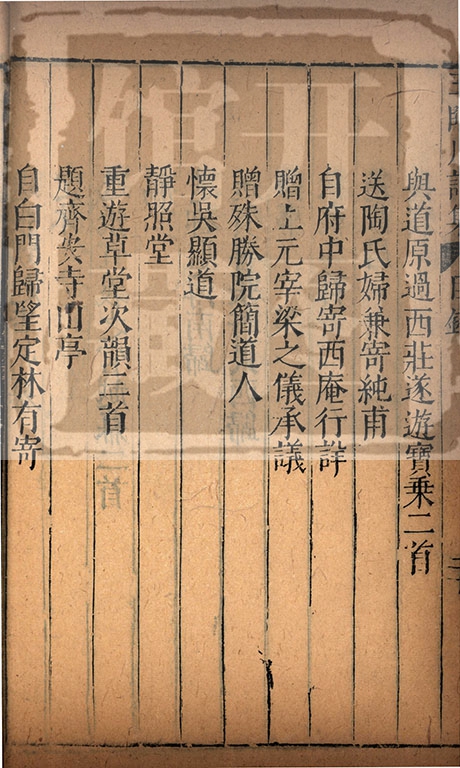 與道原過西莊遂遊寶乘二首
送陶氏婦兼寄純甫
自府中歸寄西庵行詳
贈上元宰梁之儀承議
贈殊勝院簡道人
懷吳顯道
靜照堂
重遊草堂次韻三首
題齊安寺山亭
自白門歸望定林有寄